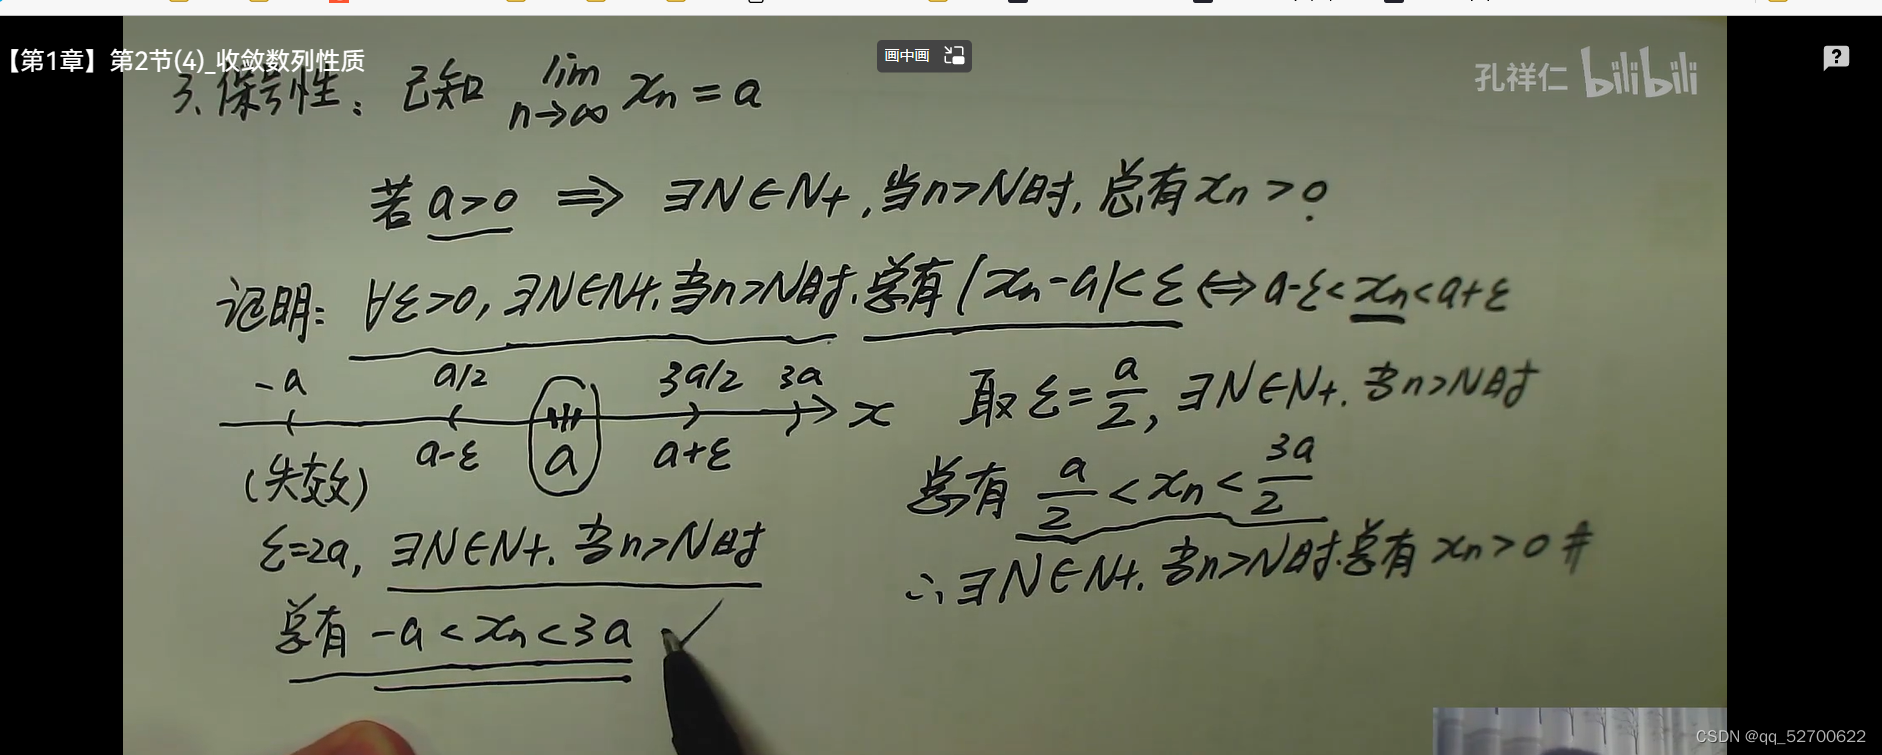 【第1章】第2节(4)_收敛数列性质
画中画
孔祥仁 bilibili
3、保号性: 已知 lim n→∞ xn = a
若 a>0 ⟹ ∃N∈N+, 当n>N时, 总有 xn > 0
证明: ∀ε>0, ∃N∈N+, 当n>N时, 总有 |xn-a|<ε ⟺ a-ε<xn<a+ε
-a a/2 3a/2 3a
a x
(失效) a-ε a+ε
ε=2a, ∃N∈N+, 当n>N时
总有 -a<xn<3a ✓
取 ε=a/2, ∃N∈N+, 当n>N时
总有 a/2 < xn < 3a/2
∴∃N∈N+, 当n>N时, 总有 xn>0 #
CSDN @qq_52700622